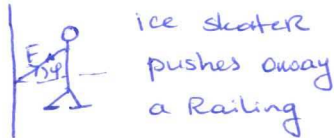 ice skater
pushes away
a Railing
F
φ